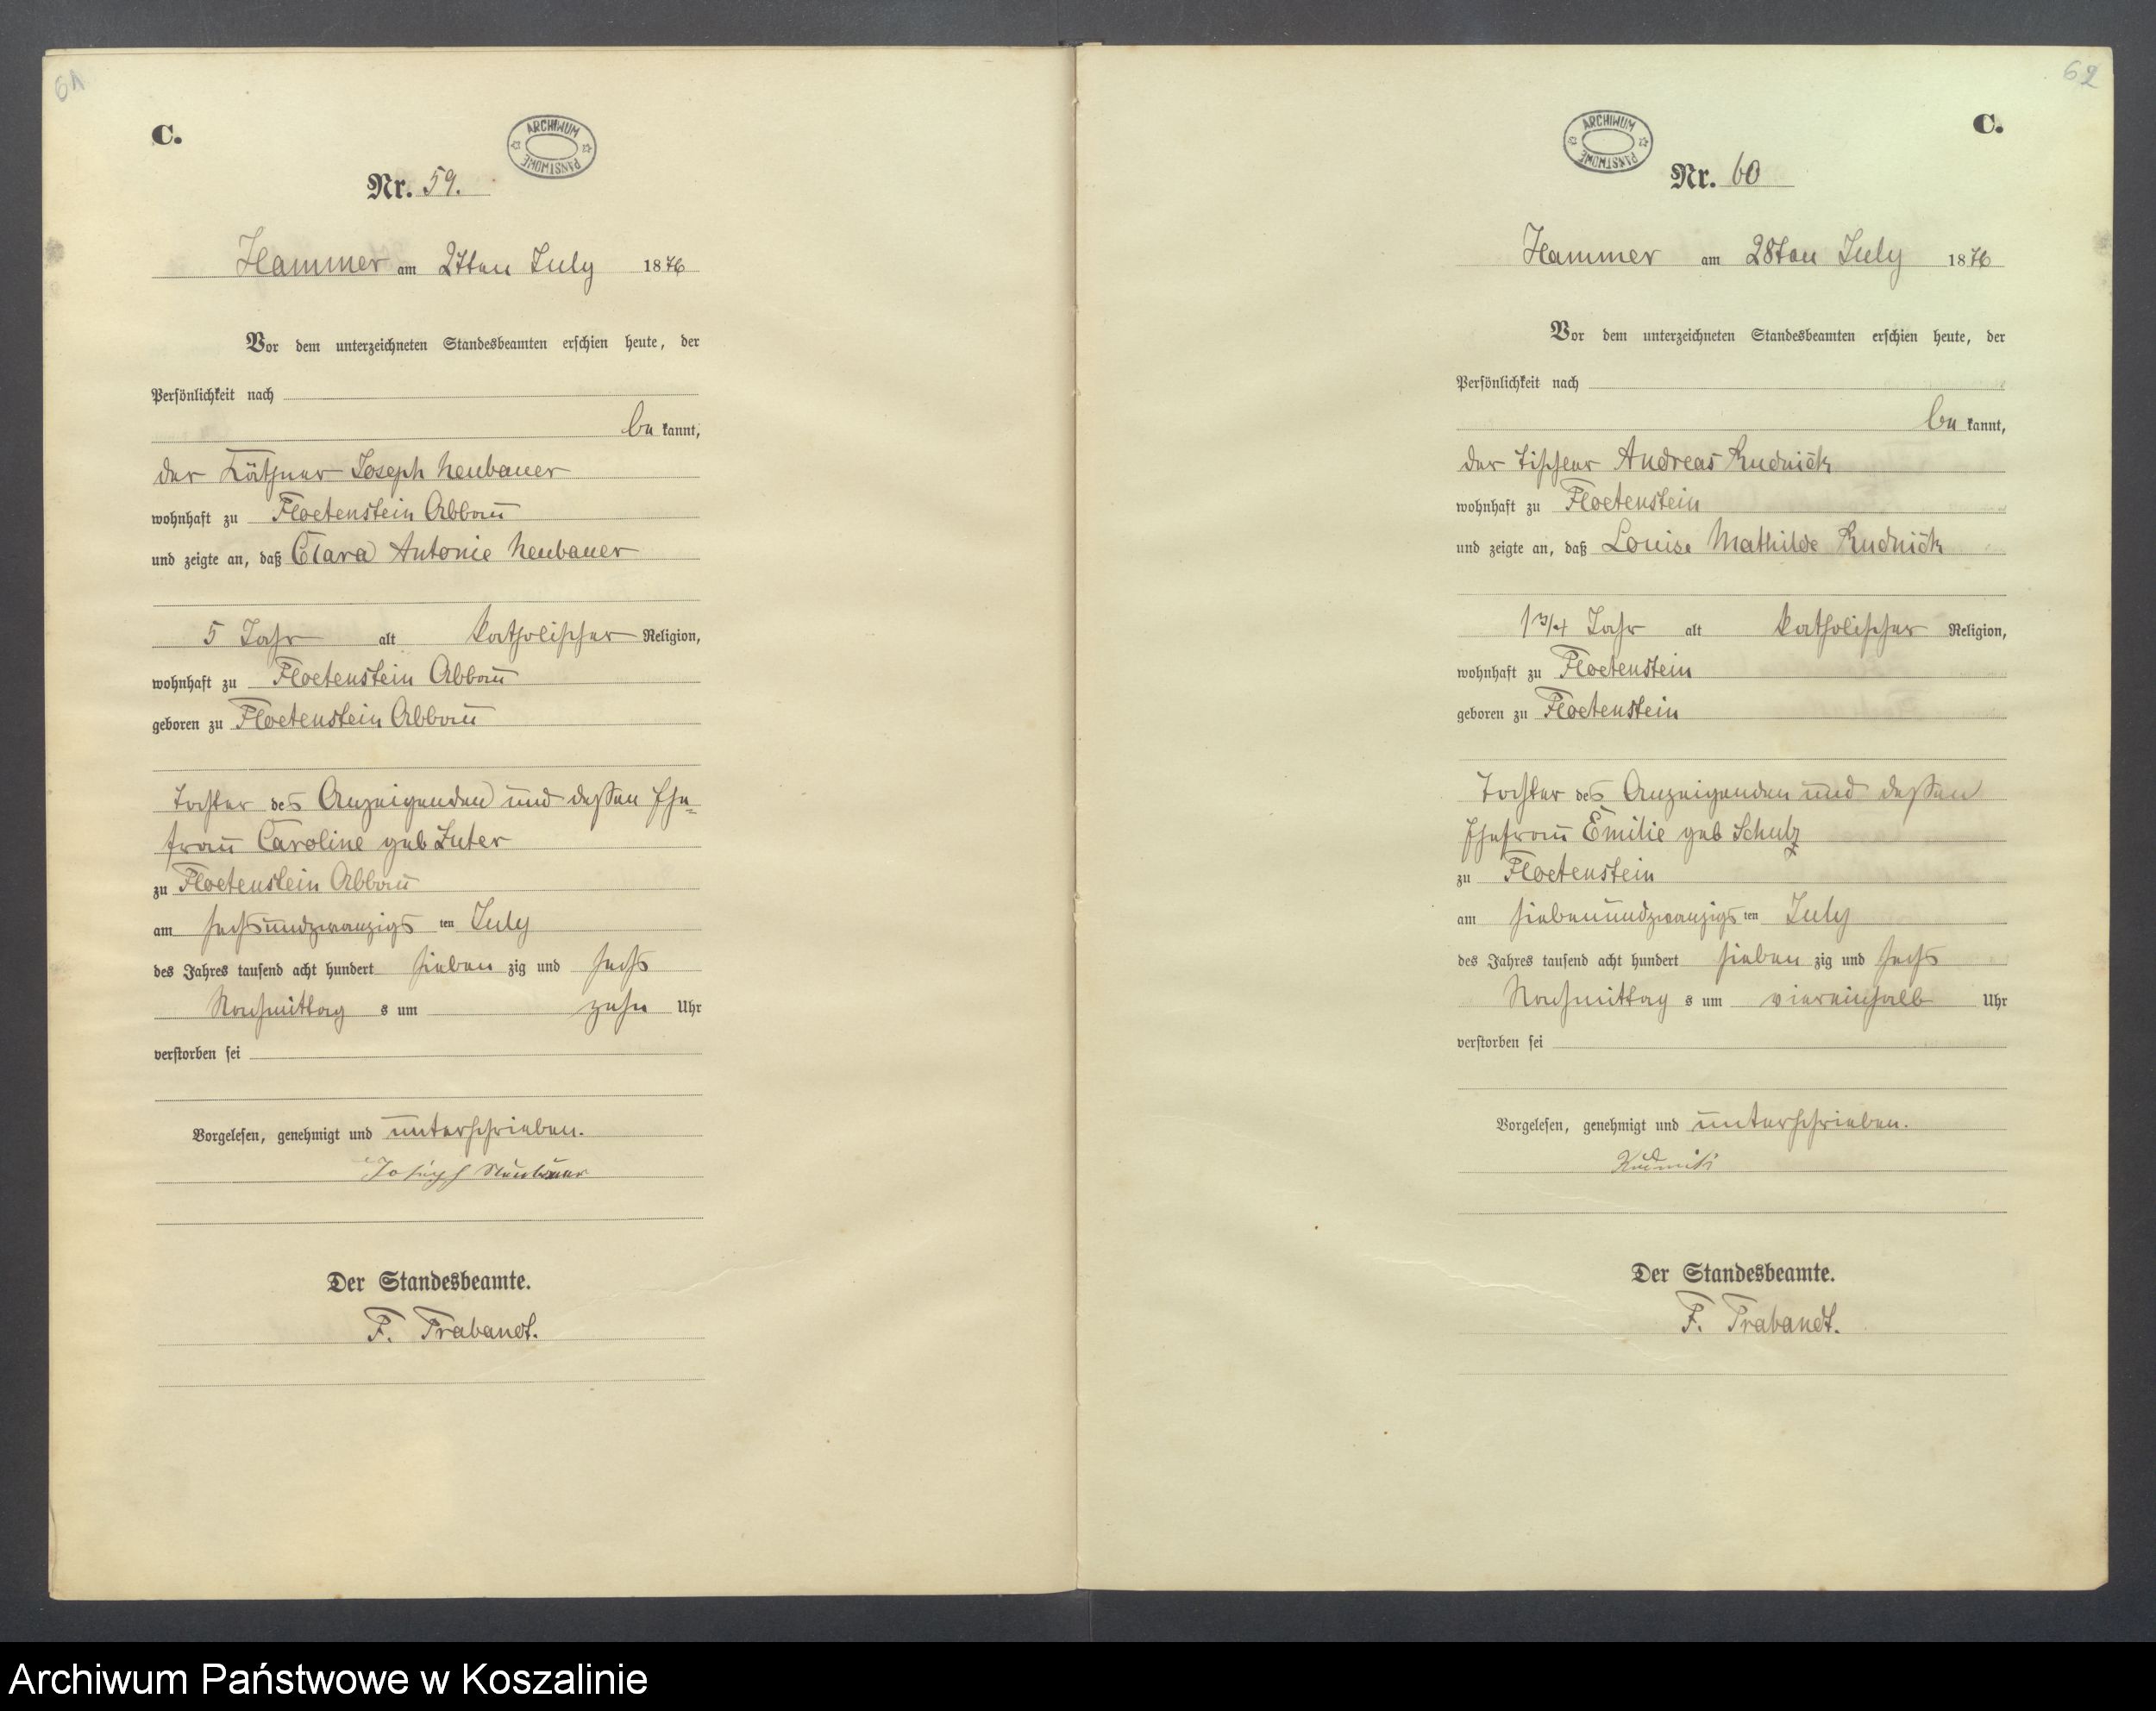 61
C.
ARCHIWUM PAŃSTWOWE
Nr. 59.
Hammer am 27ten July 1876
Vor dem unterzeichneten Standesbeamten erschien heute, der
Persönlichkeit nach
be kannt,
der Käthner Joseph Neubauer
wohnhaft zu Floetenstein Abbau
und zeigte an, daß Clara Antonie Neubauer
5 Jahr alt katholischer Religion,
wohnhaft zu Floetenstein Abbau
geboren zu Floetenstein Abbau
Tochter des Anzeigenden und dessen Ehe-
frau Caroline geb Luter
zu Floetenstein Abbau
am sechsundzwanzigs ten July
des Jahres tausend acht hundert sieben zig und sechs
Nachmittag s um zehn Uhr
verstorben sei
Vorgelesen, genehmigt und unterschrieben.
Joseph Neubauer
Der Standesbeamte.
F. Trabandt.
62
C.
ARCHIWUM PAŃSTWOWE
Nr. 60
Hammer am 28ten July 1876
Vor dem unterzeichneten Standesbeamten erschien heute, der
Persönlichkeit nach
be kannt,
der Tischler Andreas Rudnick
wohnhaft zu Floetenstein
und zeigte an, daß Louise Mathilde Rudnick
1 3/4 Jahr alt katholischer Religion,
wohnhaft zu Floetenstein
geboren zu Floetenstein
Tochter des Anzeigenden und dessen
Ehefrau Emilie geb Schulz
zu Floetenstein
am siebenundzwanzigs ten July
des Jahres tausend acht hundert sieben zig und sechs
Nachmittag s um viereinhalb Uhr
verstorben sei
Vorgelesen, genehmigt und unterschrieben.
Der Standesbeamte.
F. Trabandt.
Archiwum Państwowe w Koszalinie